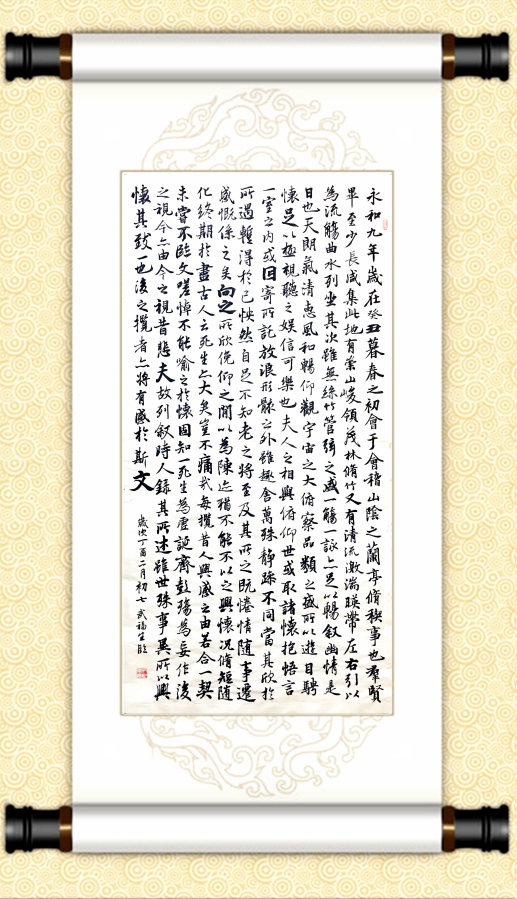 永和九年歲在癸丑暮春之初會于會稽山陰之蘭亭脩稧事也羣賢
畢至少長咸集此地有崇山峻領茂林脩竹又有清流激湍暎帶左右引以
為流觴曲水列坐其次雖無絲竹管弦之盛一觴一詠亦足以暢叙幽情是
日也天朗氣清惠風和暢仰觀宇宙之大俯察品類之盛所以遊目騁
懷足以極視聽之娛信可樂也夫人之相與俯仰世或取諸懷抱悟言
一室之内或因寄所託放浪形骸之外雖趣舍萬殊静躁不同當其欣於
所遇暫得於己怏然自足不知老之將至及其所之既惓情隨事遷
感慨係之矣向之所欣俛仰之間以為陳迹猶不能不以之興懷況脩短隨
化終期於盡古人云死生亦大矣豈不痛哉每攬昔人興感之由若合一契
未嘗不臨文嗟悼不能喻之於懷固知一死生為虛誕齊彭殤為妄作後
之視今亦由今之視昔悲夫故列叙時人録其所述雖世殊事異所以興
懷其致一也後之攬者亦將有感於斯文
歲次丁酉二月初七武福生臨